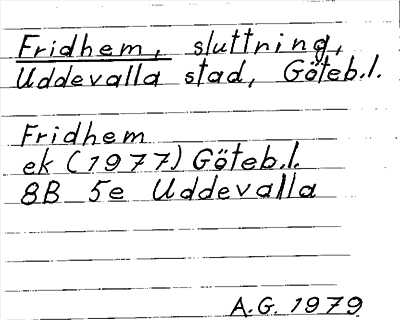 Fridhem, sluttning,
Uddevalla stad, Göteb.l.
Fridhem
ek (1977) Göteb.l.
8B 5e Uddevalla
A.G. 1979